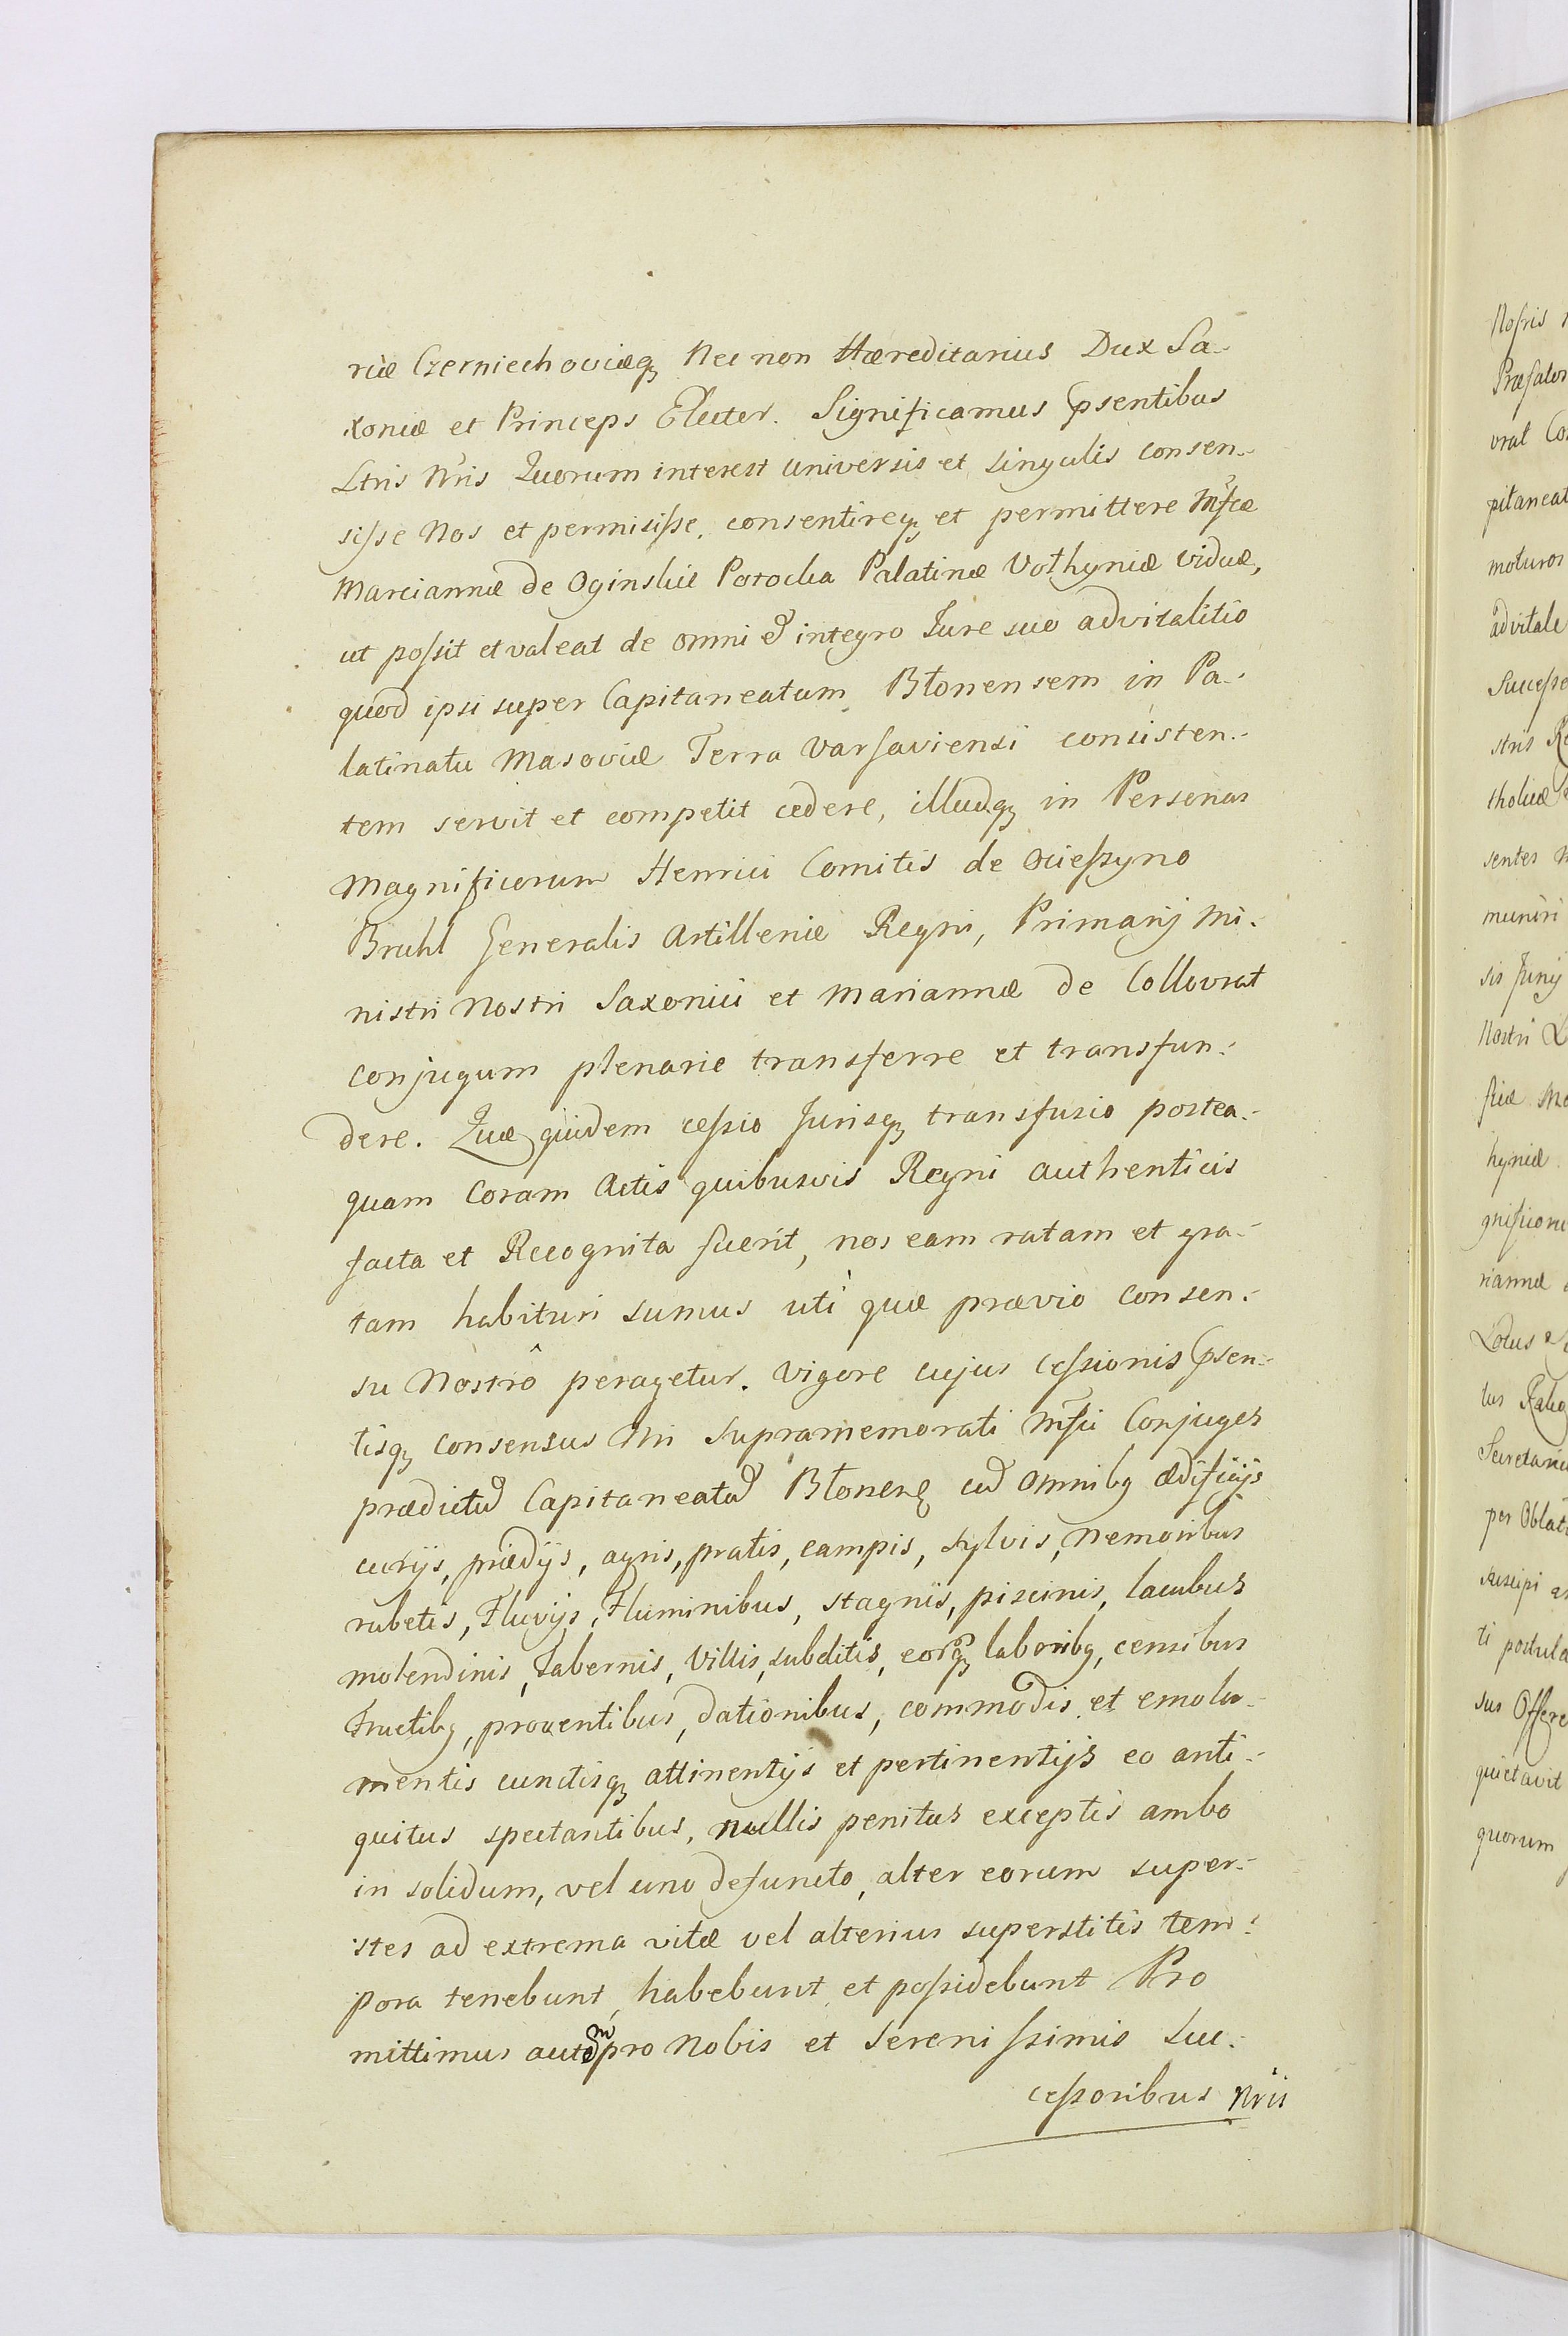 riæ Czerniechoviæq₃ Nec non Hæreditarius Dux Sa-
xoniæ et Princeps Elector. Significamus psentibus
Ltris Nris Quorum interest universis et singulis consen-
sisse Nos et permisisse, consentireq₃ et permittere Mfcæ
Marciannæ de Oginskie Potocka Palatinæ Volhyniæ viduæ,
ut possit et valeat de omni et integro Jure suo advitalitio
quod ipsi super Capitaneatum Błonensem in Pa-
latinatu Masoviæ Terra Varsaviensi consisten-
tem servit et competit cedere, illudq₃ in Personas
Magnificorum Henrici Comitis de Ocieszyno
Bruhl Generalis Artilleriæ Regni, Primarij Mi-
nistri Nostri Saxonici et Mariannæ de Collovrat
conjugum plenarie transferre et transfun-
dere. Quæ quidem cessio Jurisq₃ transfusio postea-
quam Coram Actis quibusvis Regni authenticis
facta et Recognita fuerit, nos eam ratam et gra-
tam habituri sumus uti quæ prævio consen-
su Nostrô peragetur. Vigore cujus cessionis psen-
tisq₃ consensus Nri supramemorati Mfci Conjuges
prædictũ Capitaneatũ Błonen₃ cũ omnibq₃ ædificijs
curijs, prædijs, agris, pratis, campis, sylvis, nemoribus
rubetis, Fluvijs, Fluminibus, stagnis, piscinis, lacubus
molendinis, Tabernis, Villis, subditis, eorq₃ laboribq₃, censibus
Fructibq₃, proventibus, dationibus, commodis et emolu-
mentis cunctisq₃ attinentijs et pertinentijs eo anti-
quitus spectantibus, nullis penitus exceptis ambo
in solidum, vel uno defuncto, alter eorum super-
stes ad extrema vitæ vel alterius superstitis tem-
pora tenebunt, habebunt et possidebunt Pro
mittimus autem pro Nobis et Serenissimis Suc-
cessoribus Nris
Nosris
Præfator
vrat Co
pitaneat
moturos
advitale
Successo
stris Re
tholicæ
sentes
muniri
sis Junij
Nostri
hyniæ
gnificoru
riannæ
per Oblat
suscipi
ti postula
sus Offere
quietavit
quorum